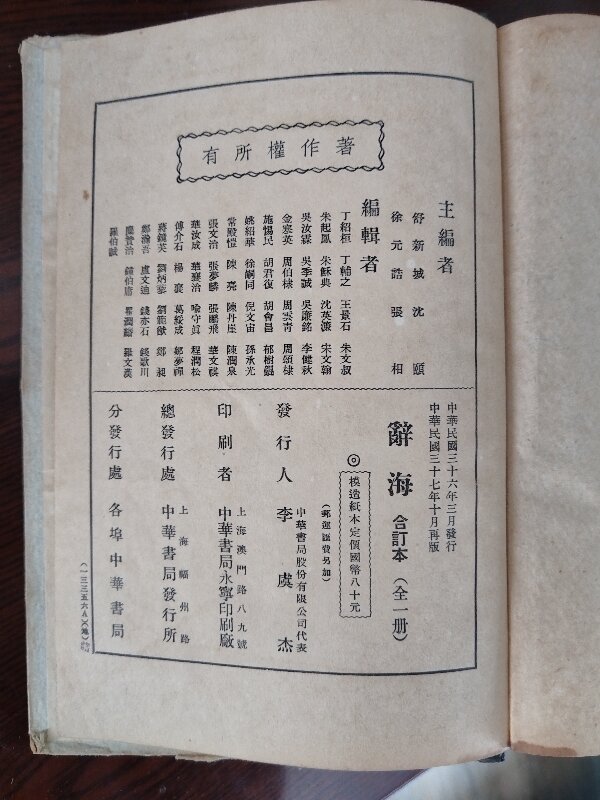 著作權所有
主編者
舒新城 沈頤
徐元誥 張相
編輯者
丁紹桓 丁輔之 王景石 朱文叔
朱起鳳 朱穌典 沈英濂 宋文翰
吳汝霖 吳季誠 吳廉銘 李健秋
金寀英 周伯棣 周雲青 周頌棣
施惕民 胡君復 胡會昌 郁樹錕
姚紹華 徐嗣同 倪文宙 孫承光
常殿愷 陳亮 陳丹崖 陳潤泉
張文治 張夢麟 張鵬飛 華文祺
華汝成 華襄治 喻守真 程潤松
傅介石 楊褒 葛綏成 鄒夢禪
蔣鏡芙 劉炳藜 劉範猷 鄭昶
鄭瀚吾 盧文迪 錢亦石 錢歌川
鍾伯庸 羅文漢
羅伯誠
中華民國三十六年三月發行
中華民國三十七年十月再版
辭海 合訂本 (全一册)
◎模造紙本定價國幣八十元
(郵運匯費另加)
發行人 李虞杰
中華書局股份有限公司代表
印刷者 上海澳門路八九號
中華書局永寧印刷廠
總發行處 上海福州路
中華書局發行所
分發行處 各埠中華書局